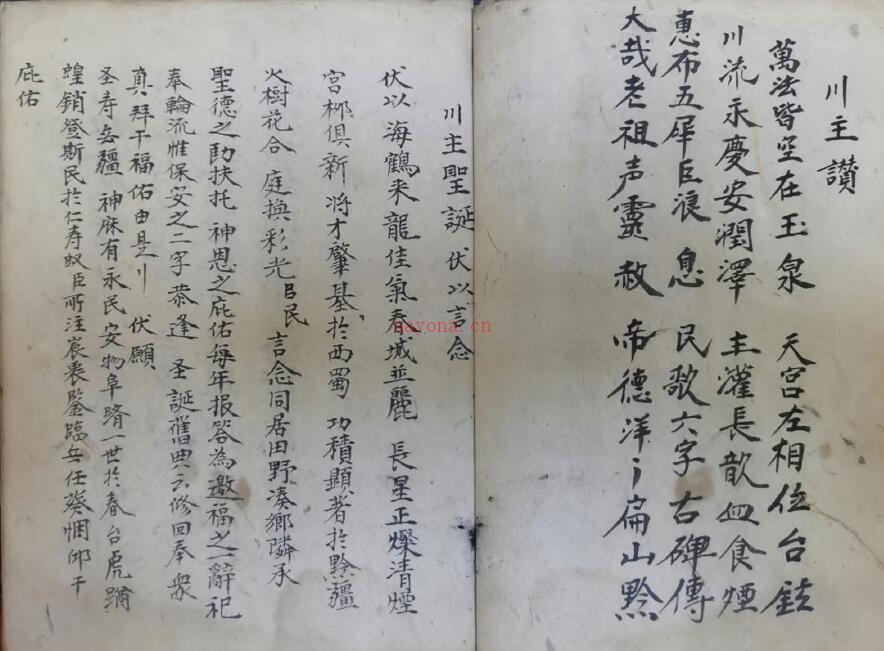 川主讚
萬法皆空在玉泉 天宫左相位台鉉
川流永慶安潤澤 主灌長歆血食煙
惠布五犀巨浪息 民歌六字古碑傳
大哉老祖声靈赦 帝德洋〻扁山黔
川主聖誕 伏以言念
伏以海鶴来龍佳氣春城並麗 長星正燦清煙
宫柳俱新将才肇基於西蜀 功積顯著於黔疆
火樹花合 庭換彩光 吕民 言念同居田野凑鄉隣承
聖德之助扶托 神恩之庇佑每年报答為邀福之一辭祀
奉輪流惟保安之二字恭逢 圣誕舊典云修回奉衆
真拜干福佑由是川 伏願
圣寿无疆 神庥有永民安物阜躋一世於春台虎
蝗銷登斯民於仁寿蚁臣所注宸衷鑒臨无任葵悃仰干
庇佑
nayona.cn